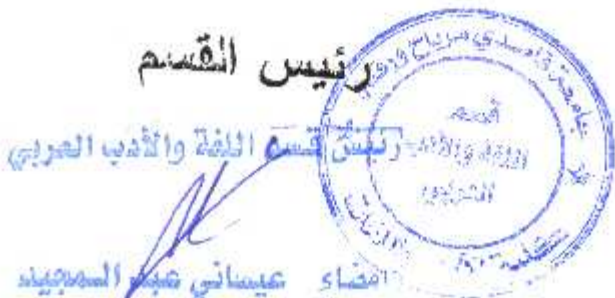 رئيس القسم
رئيس قسم اللغة والأدب العربي
إمضاء عيساني عبد المجيد
جامعة قاصدي مرباح ورقلة
قسم
اللغة والأدب
العربي